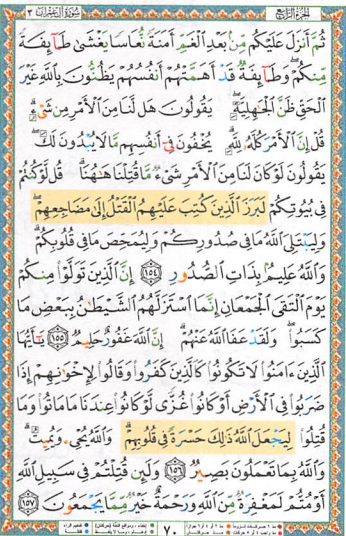 الجزء الرابع سورة آل عمران ٣
ثُمَّ أَنزَلَ عَلَيْكُم مِّنۢ بَعْدِ ٱلْغَمِّ أَمَنَةً نُّعَاسًا يَغْشَىٰ طَآئِفَةً
مِّنكُمْ ۖ وَطَآئِفَةٌ قَدْ أَهَمَّتْهُمْ أَنفُسُهُمْ يَظُنُّونَ بِٱللَّهِ غَيْرَ
ٱلْحَقِّ ظَنَّ ٱلْجَٰهِلِيَّةِ ۖ يَقُولُونَ هَل لَّنَا مِنَ ٱلْأَمْرِ مِن شَىْءٍ ۗ
قُلْ إِنَّ ٱلْأَمْرَ كُلَّهُۥ لِلَّهِ ۗ يُخْفُونَ فِىٓ أَنفُسِهِم مَّا لَا يُبْدُونَ لَكَ ۖ
يَقُولُونَ لَوْ كَانَ لَنَا مِنَ ٱلْأَمْرِ شَىْءٌ مَّا قُتِلْنَا هَٰهُنَا ۗ قُل لَّوْ كُنتُمْ
فِى بُيُوتِكُمْ لَبَرَزَ ٱلَّذِينَ كُتِبَ عَلَيْهِمُ ٱلْقَتْلُ إِلَىٰ مَضَاجِعِهِمْ ۖ
وَلِيَبْتَلِىَ ٱللَّهُ مَا فِى صُدُورِكُمْ وَلِيُمَحِّصَ مَا فِى قُلُوبِكُمْ ۗ
وَٱللَّهُ عَلِيمٌۢ بِذَاتِ ٱلصُّدُورِ ١٥٤ إِنَّ ٱلَّذِينَ تَوَلَّوْا۟ مِنكُمْ
يَوْمَ ٱلْتَقَى ٱلْجَمْعَانِ إِنَّمَا ٱسْتَزَلَّهُمُ ٱلشَّيْطَٰنُ بِبَعْضِ مَا
كَسَبُوا۟ ۖ وَلَقَدْ عَفَا ٱللَّهُ عَنْهُمْ ۗ إِنَّ ٱللَّهَ غَفُورٌ حَلِيمٌ ١٥٥ يَٰٓأَيُّهَا
ٱلَّذِينَ ءَامَنُوا۟ لَا تَكُونُوا۟ كَٱلَّذِينَ كَفَرُوا۟ وَقَالُوا۟ لِإِخْوَٰنِهِمْ إِذَا
ضَرَبُوا۟ فِى ٱلْأَرْضِ أَوْ كَانُوا۟ غُزًّى لَّوْ كَانُوا۟ عِندَنَا مَا مَاتُوا۟ وَمَا
قُتِلُوا۟ لِيَجْعَلَ ٱللَّهُ ذَٰلِكَ حَسْرَةً فِى قُلُوبِهِمْ ۗ وَٱللَّهُ يُحْىِۦ وَيُمِيتُ ۗ
وَٱللَّهُ بِمَا تَعْمَلُونَ بَصِيرٌ ١٥٦ وَلَئِن قُتِلْتُمْ فِى سَبِيلِ ٱللَّهِ
أَوْ مُتُّمْ لَمَغْفِرَةٌ مِّنَ ٱللَّهِ وَرَحْمَةٌ خَيْرٌ مِّمَّا يَجْمَعُونَ ١٥٧
٧٠